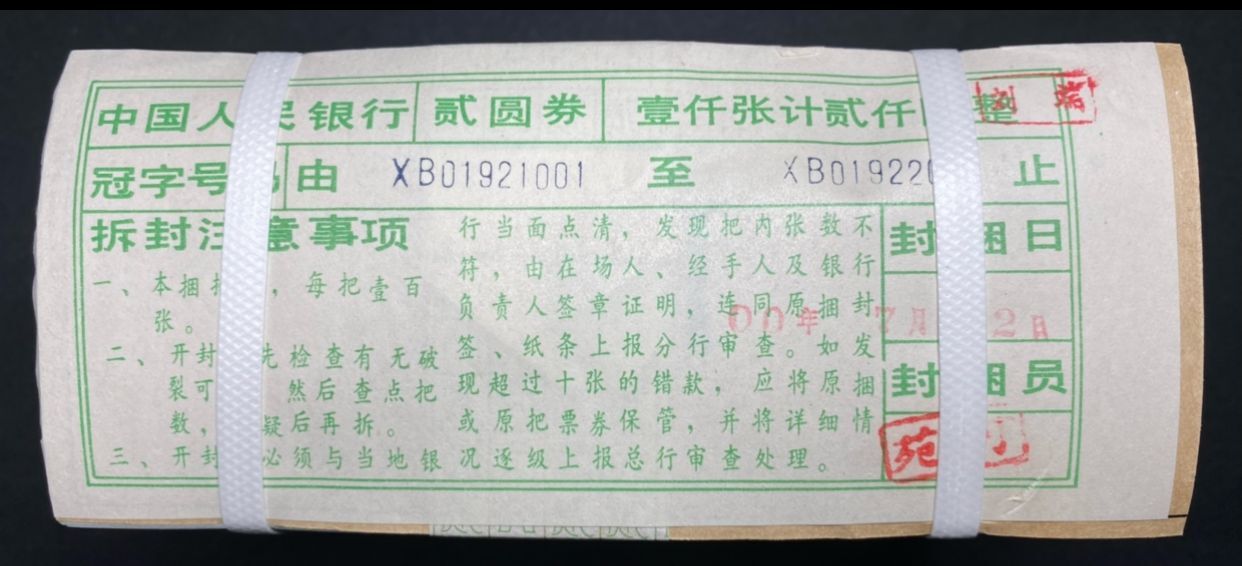 中国人民银行 贰圆券 壹仟张计贰仟 整
冠字号 由 XB01921001 至 XB019220 止
拆封注意事项
一、本捆 ,每把壹百
张。
二、开封 先检查有无破
裂可 然后查点把
数, 疑后再拆。
三、开封 必须与当地银
行当面点清,发现把内张数不
符,由在场人、经手人及银行
负责人签章证明,连同原捆封
签、纸条上报分行审查。如发
现超过十张的错款,应将原捆
或原把票券保管,并将详细情
况逐级上报总行审查处理。
封捆日
00年 7月 2月
封捆员
苑